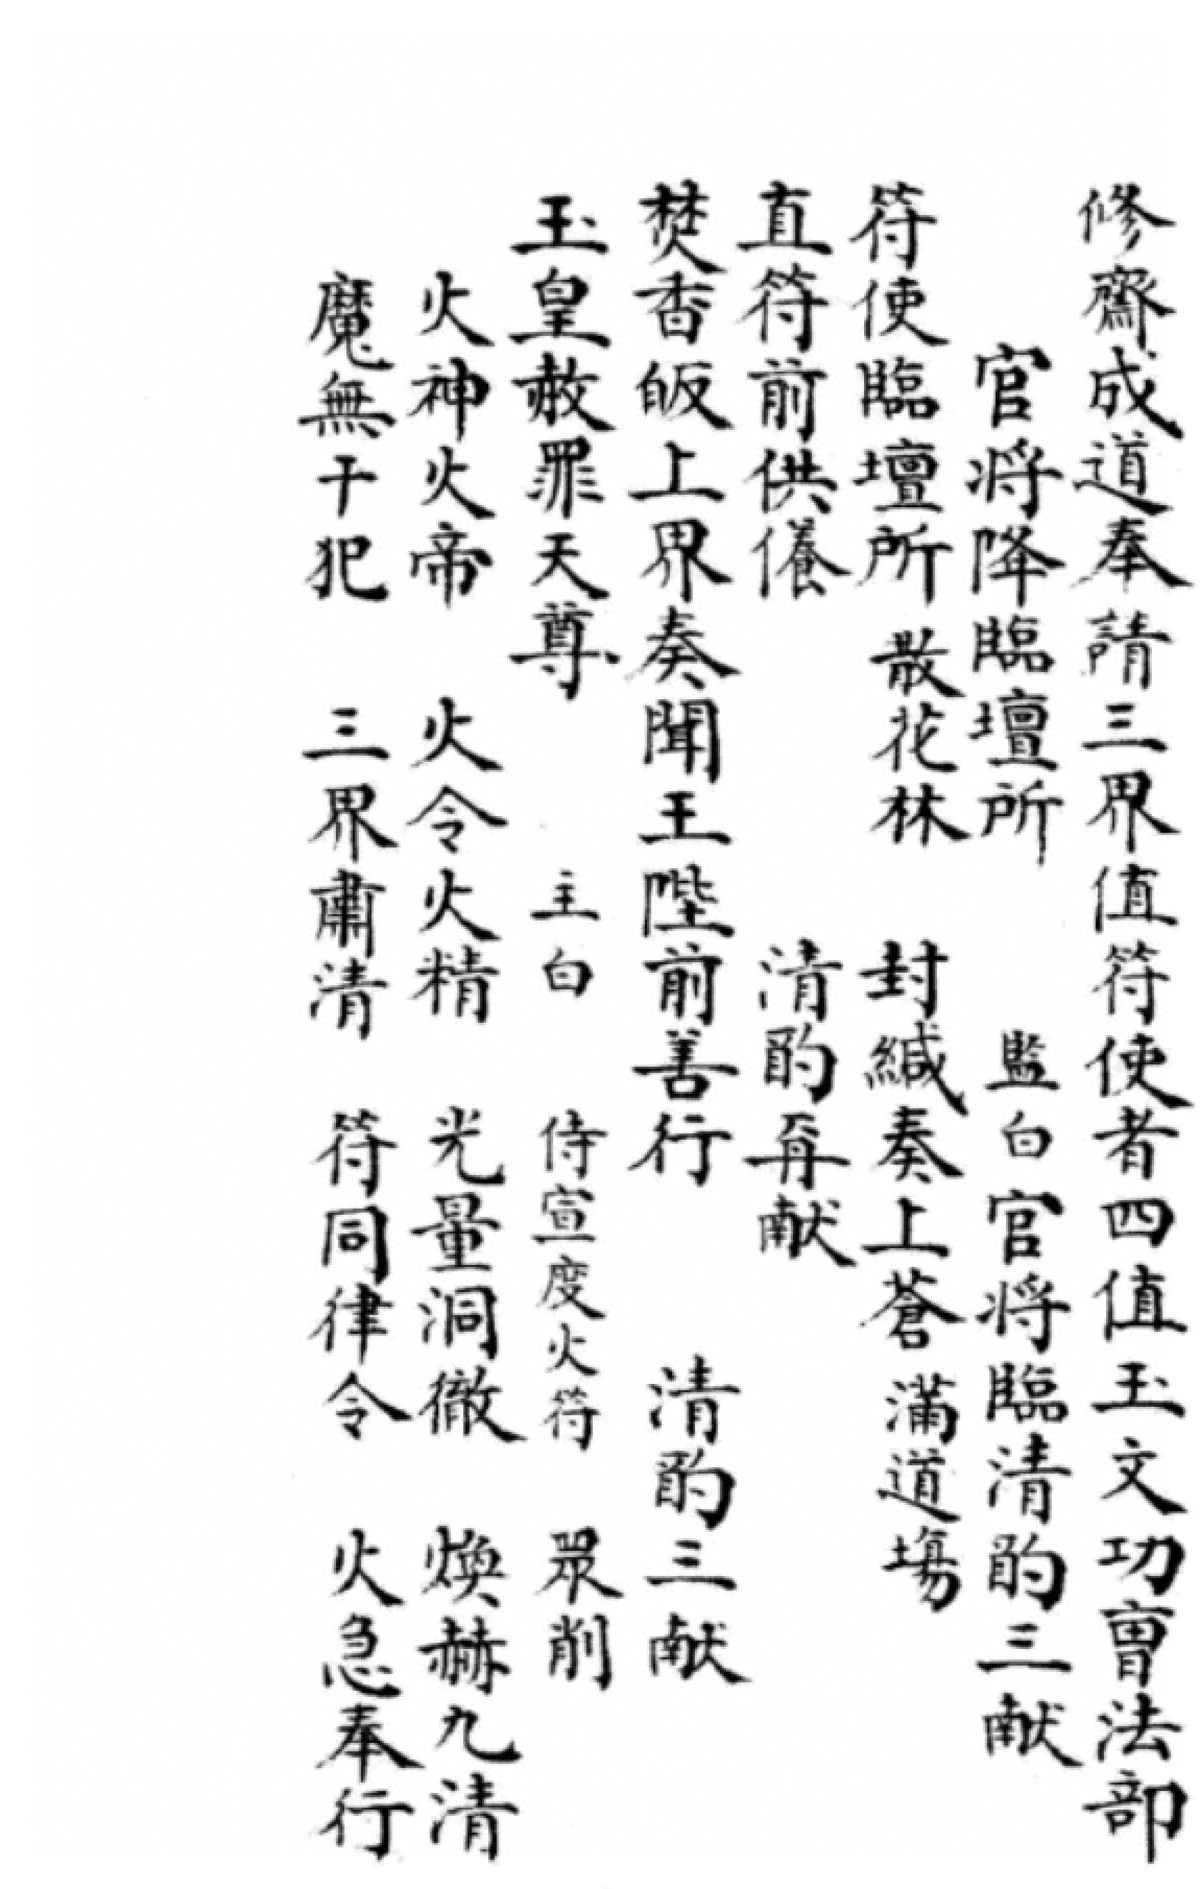 修齋成道奉請三界值符使者四值玉文功曹法部
官將降臨壇所 監白官將臨清酌三献
符使臨壇所 散花林 封緘奏上蒼 滿道場
直符前供養 清酌再献
焚香皈上界奏聞王陛前善行 清酌三献
玉皇赦罪天尊 主白 侍宣度火符 眾削
火神火帝 火令火精 光量洞徹 煥赫九清
魔無干犯 三界肅清 符同律令 火急奉行